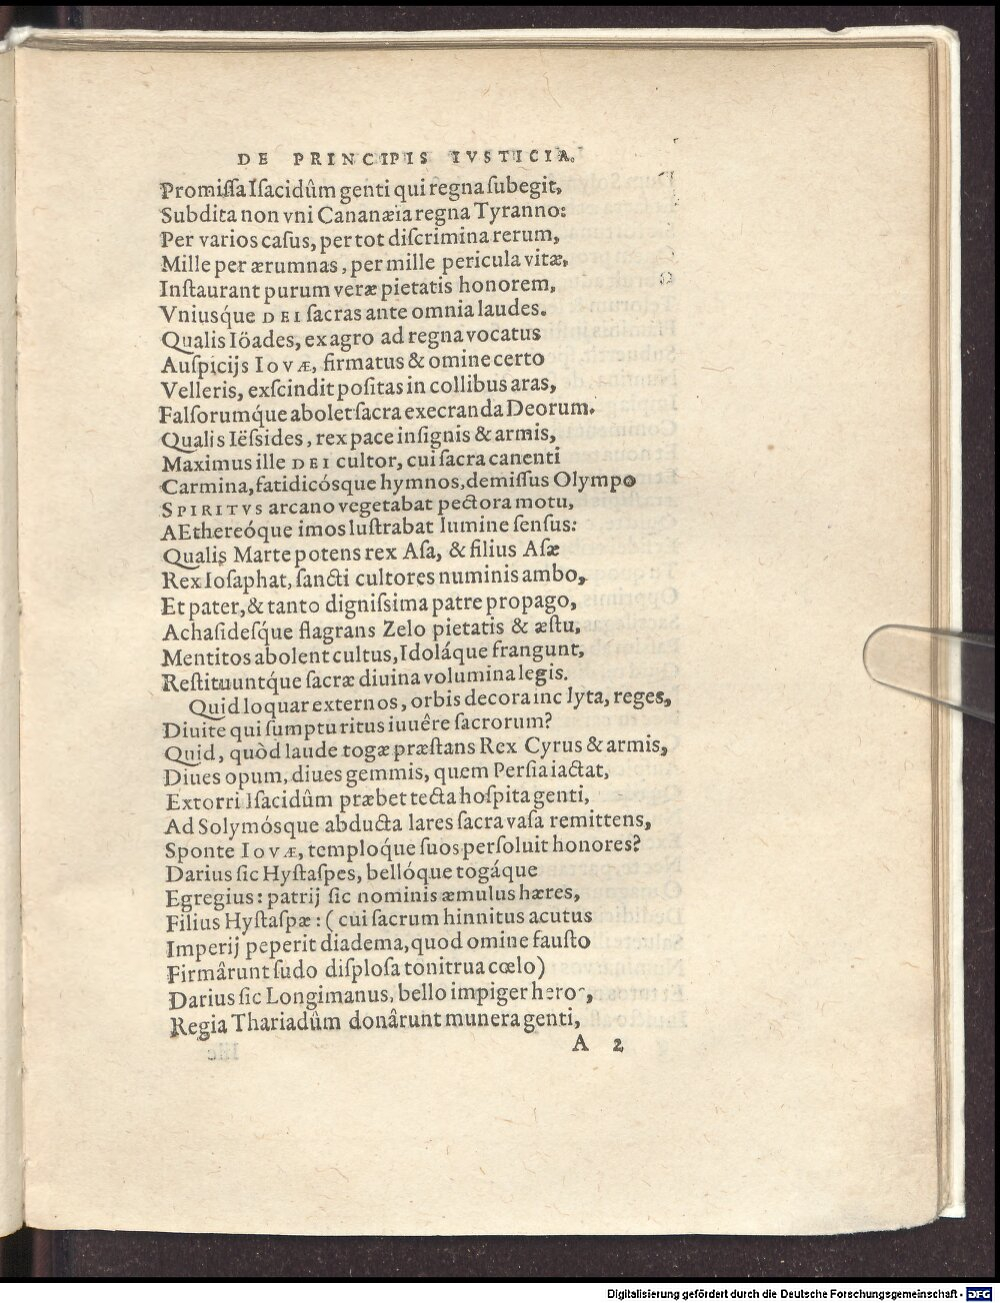 DE PRINCIPIS IVSTICIA.
Promiſſa Iſacidûm genti qui regna ſubegit,
Subdita non vni Cananæia regna Tyranno:
Per varios caſus, per tot diſcrimina rerum,
Mille per ærumnas, per mille pericula vitæ,
Inſtaurant purum veræ pietatis honorem,
Vniusque DEI ſacras ante omnia laudes.
Qualis Iöades, ex agro ad regna vocatus
Auſpicijs IOVÆ, firmatus & omine certo
Velleris, exſcindit poſitas in collibus aras,
Falſorumq́ue abolet ſacra execranda Deorum.
Qualis Iëſsides, rex pace inſignis & armis,
Maximus ille DEI cultor, cui ſacra canenti
Carmina, fatidicósque hymnos, demiſſus Olympo
SPIRITVS arcano vegetabat pectora motu,
AEthereóque imos luſtrabat lumine ſenſus:
Qualis Marte potens rex Aſa, & filius Aſæ
Rex Ioſaphat, ſancti cultores numinis ambo,
Et pater, & tanto digniſsima patre propago,
Achaſideſq́ue flagrans Zelo pietatis & æſtu,
Mentitos abolent cultus, Idoláque frangunt,
Reſtituuntq́ue ſacræ diuina volumina legis.
Quid loquar externos, orbis decora inclyta, reges,
Diuite qui ſumptu ritus iuuêre ſacrorum?
Quid, quòd laude togæ præſtans Rex Cyrus & armis,
Diues opum, diues gemmis, quem Perſia iactat,
Extorri Iſacidûm præbet tecta hoſpita genti,
Ad Solymósque abducta lares ſacra vaſa remittens,
Sponte IOVÆ, templóque ſuos perſoluit honores?
Darius ſic Hyſtaſpes, bellóque togáque
Egregius: patrij ſic nominis æmulus hæres,
Filius Hyſtaſpæ: (cui ſacrum hinnitus acutus
Imperij peperit diadema, quod omine fauſto
Firmârunt ſudo diſploſa tonitrua cœlo)
Darius ſic Longimanus, bello impiger heros,
Regia Thariadûm donârunt munera genti,
A 2
Digitalisierung gefördert durch die Deutsche Forschungsgemeinschaft - DFG